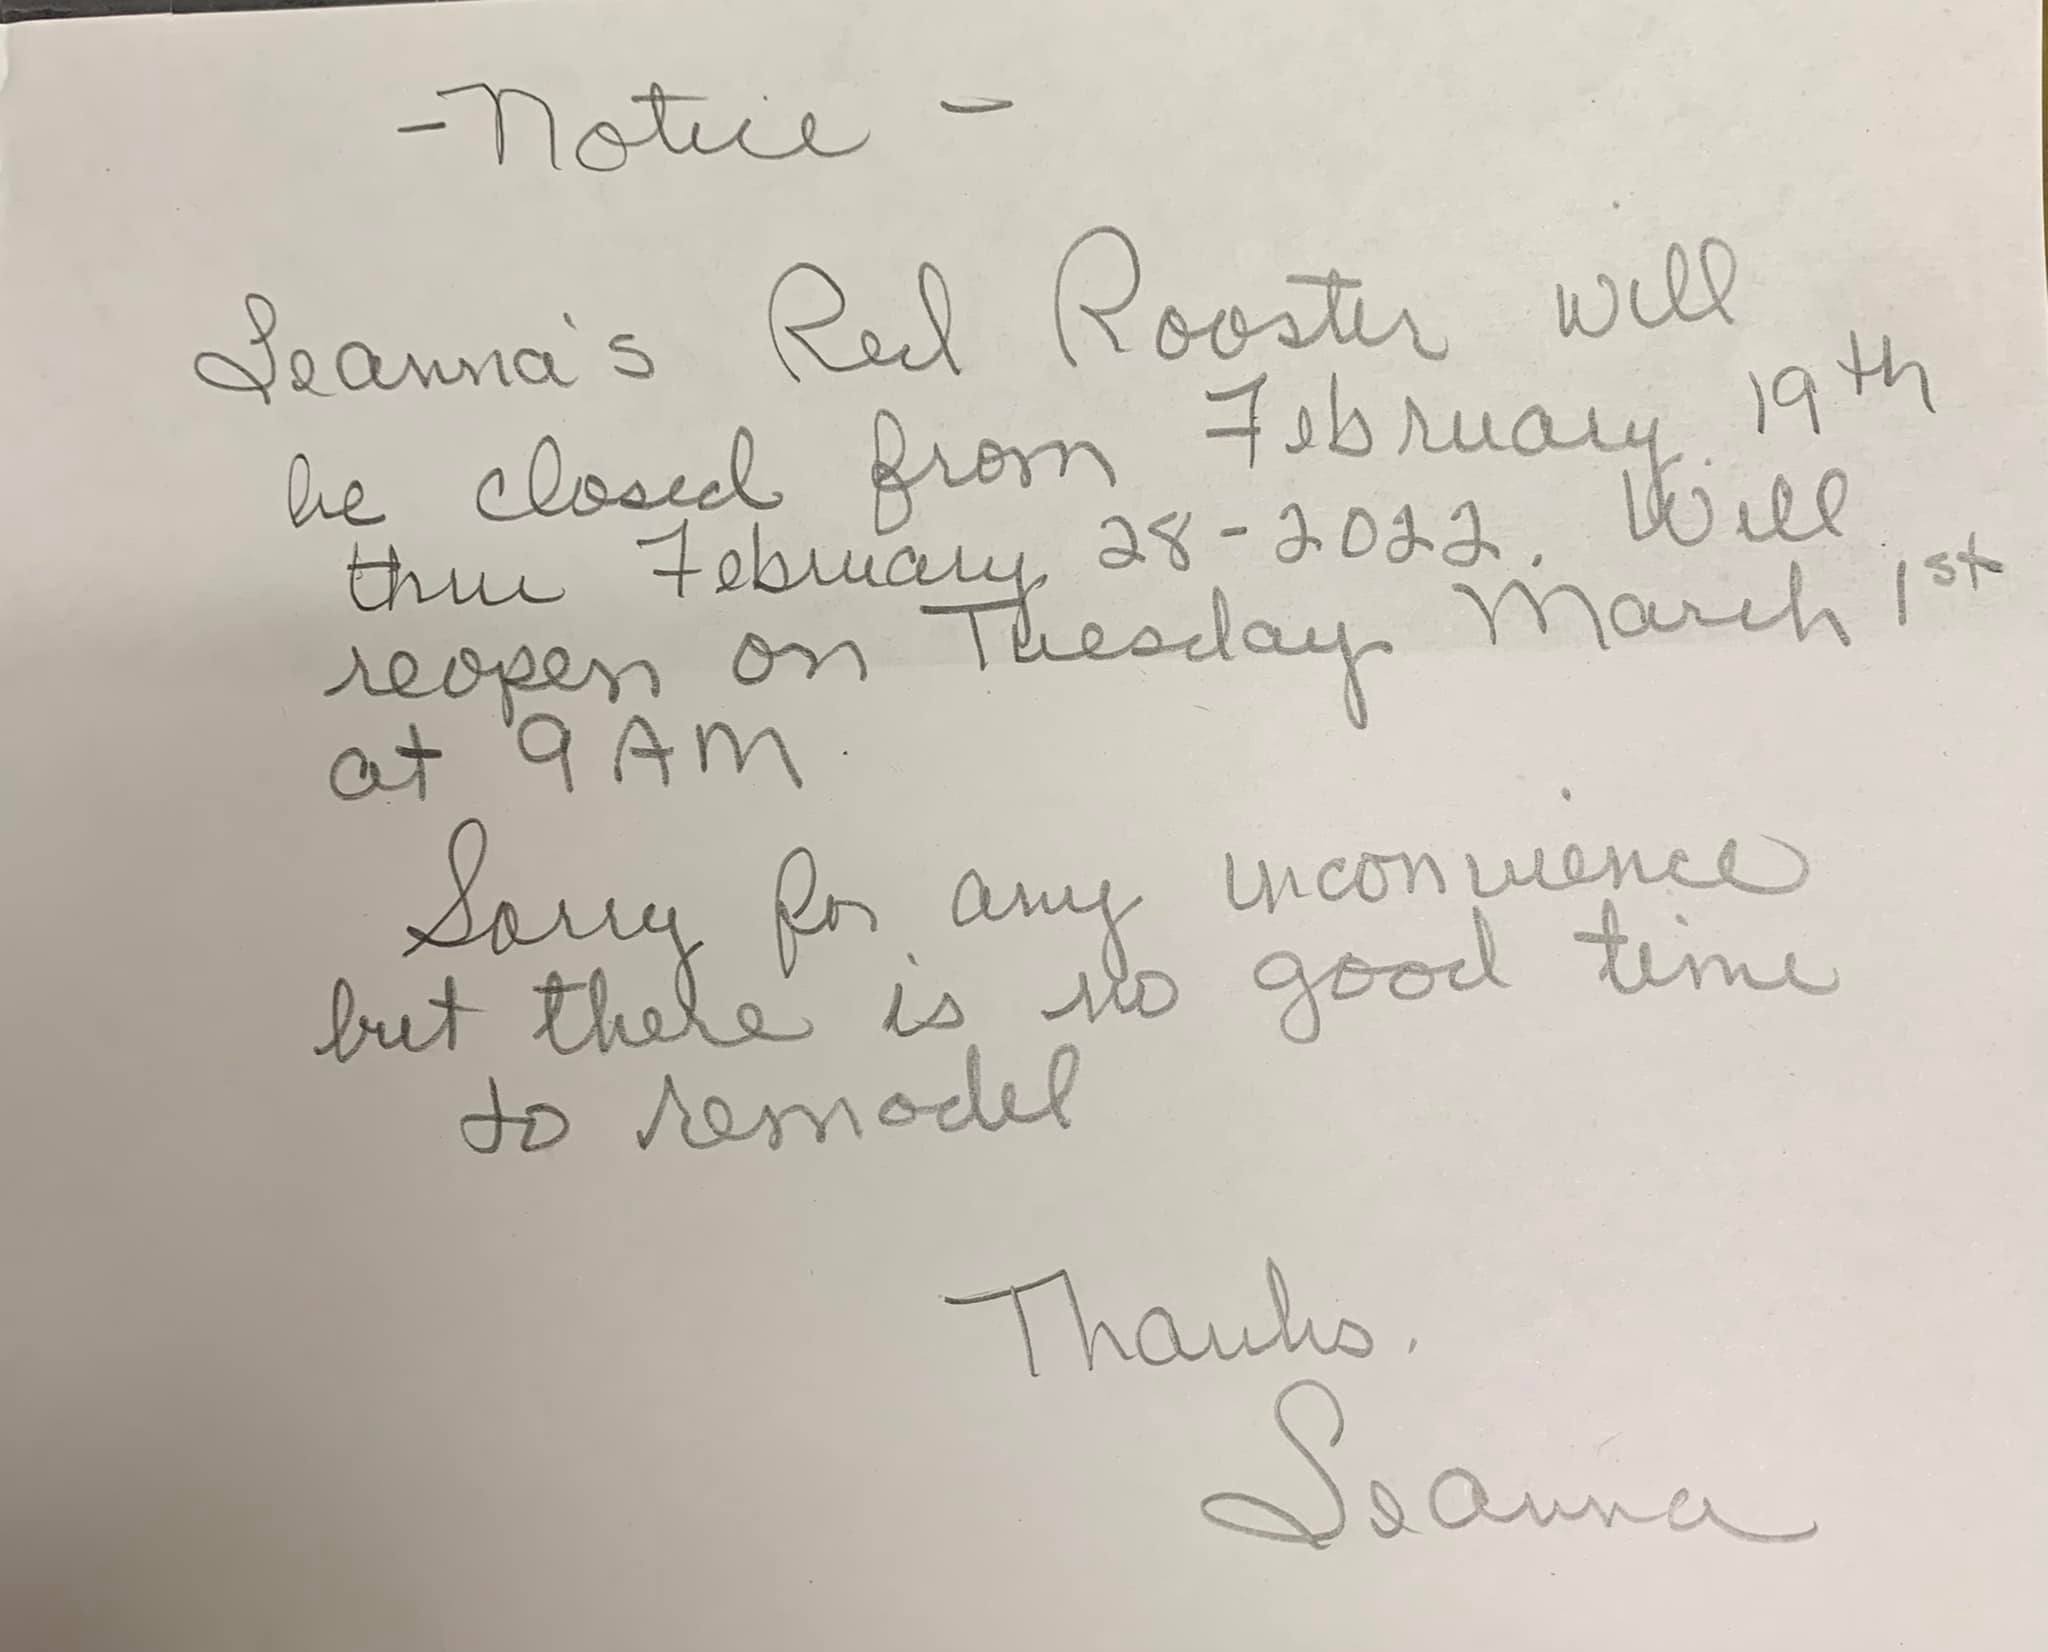 - Notice -
Leanna's Red Rooster will
be closed from February 19th
thru February 28-2022. Will
reopen on Tuesday March 1st
at 9 AM.
Sorry for any inconvience
but there is no good time
to remodel
Thanks.
Leanna